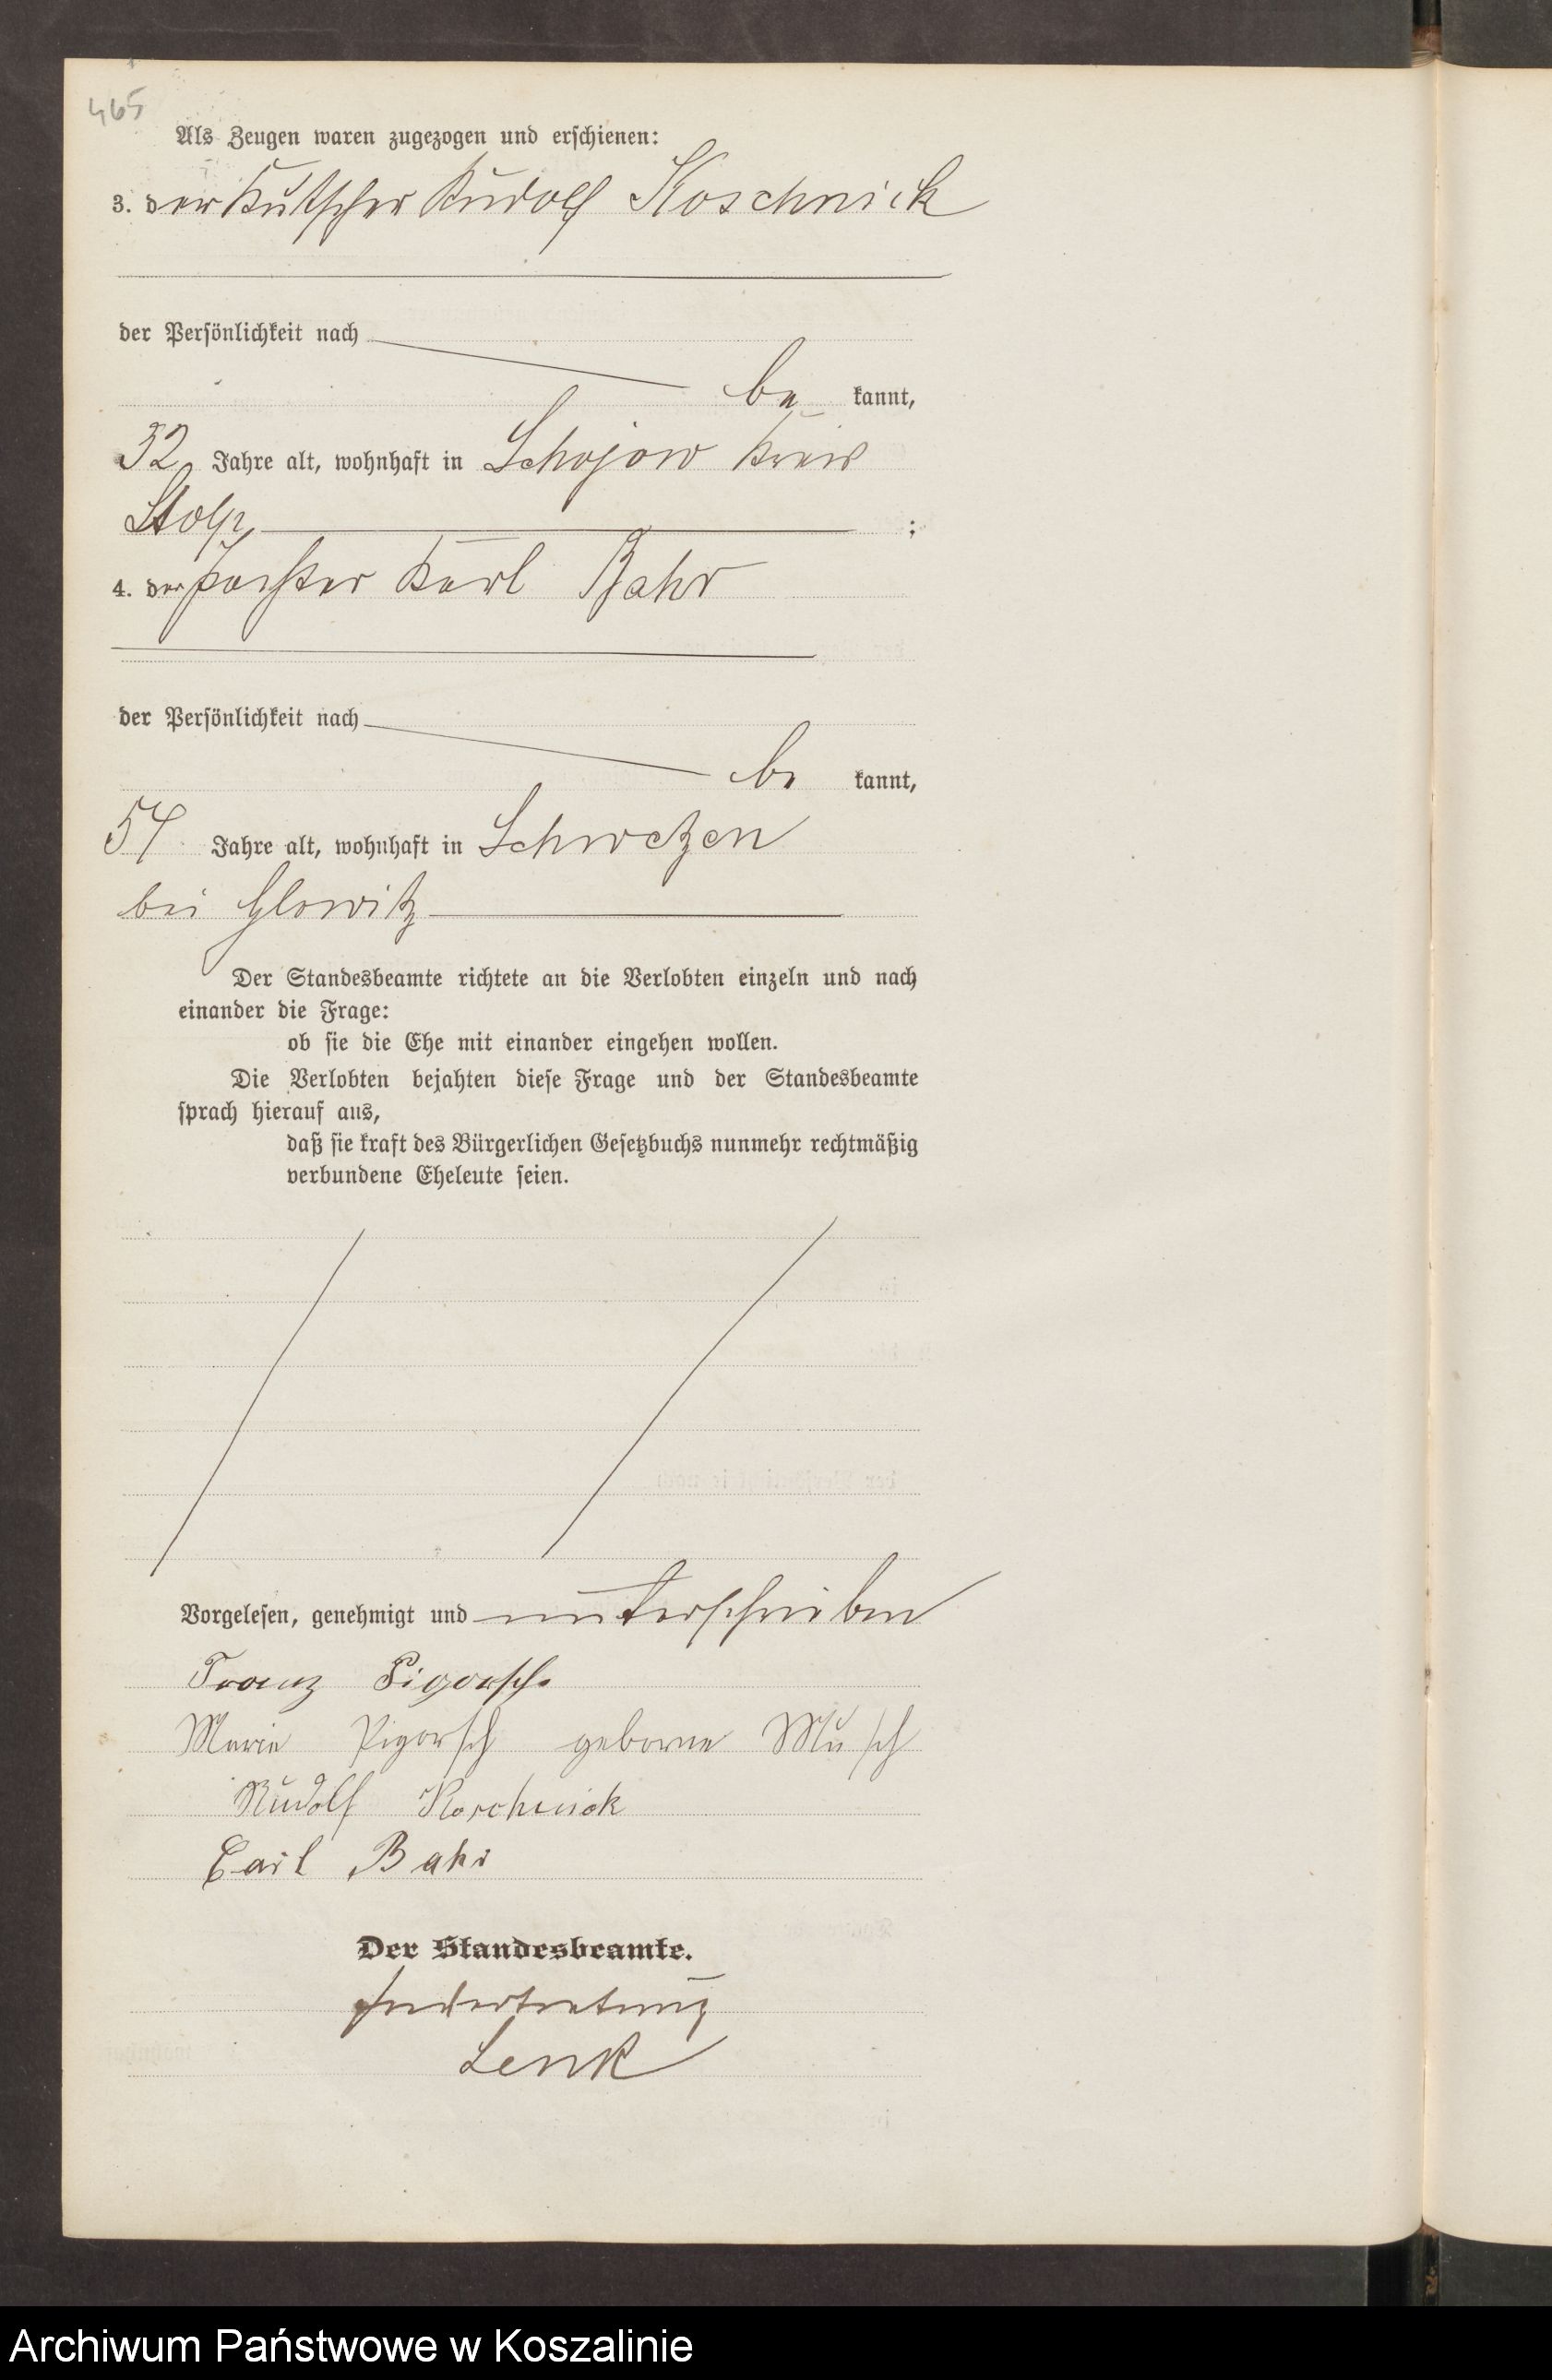 465
Als Zeugen waren zugezogen und erschienen:
3. der Kutscher Rudolf Koschnick
der Persönlichkeit nach
be kannt,
32 Jahre alt, wohnhaft in Schojow Kreis
Stolp ;
4. der Karl Bahr
der Persönlichkeit nach
be kannt,
54 Jahre alt, wohnhaft in Schwetzen
bei Glowitz
Der Standesbeamte richtete an die Verlobten einzeln und nach
einander die Frage:
ob sie die Ehe mit einander eingehen wollen.
Die Verlobten bejahten diese Frage und der Standesbeamte
sprach hierauf aus,
daß sie kraft des Bürgerlichen Gesetzbuchs nunmehr rechtmäßig
verbundene Eheleute seien.
Vorgelesen, genehmigt und unterschrieben
Franz Pigorsch
Marie Pigorsch geborne Musch
Rudolf Koschnick
Carl Bahr
Der Standesbeamte.
In Vertretung
Lenk
Archiwum Państwowe w Koszalinie